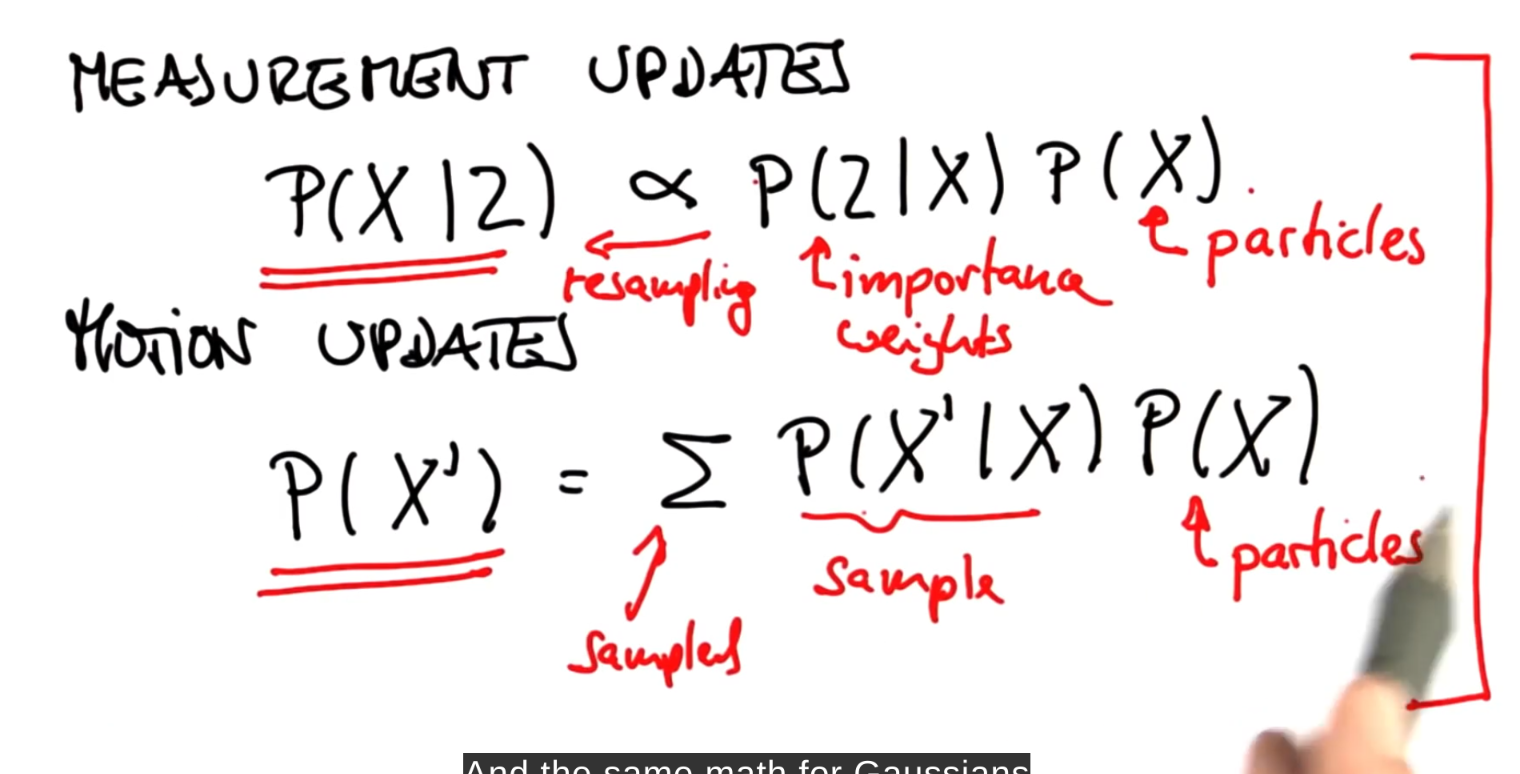 MEASUREMENT UPDATES
P(X|Z) ∝ P(Z|X) P(X).
resampling
importance
weights
particles
MOTION UPDATES
P(X') = Σ P(X'|X) P(X)
samples
sample
particles
And the same math for Gaussians